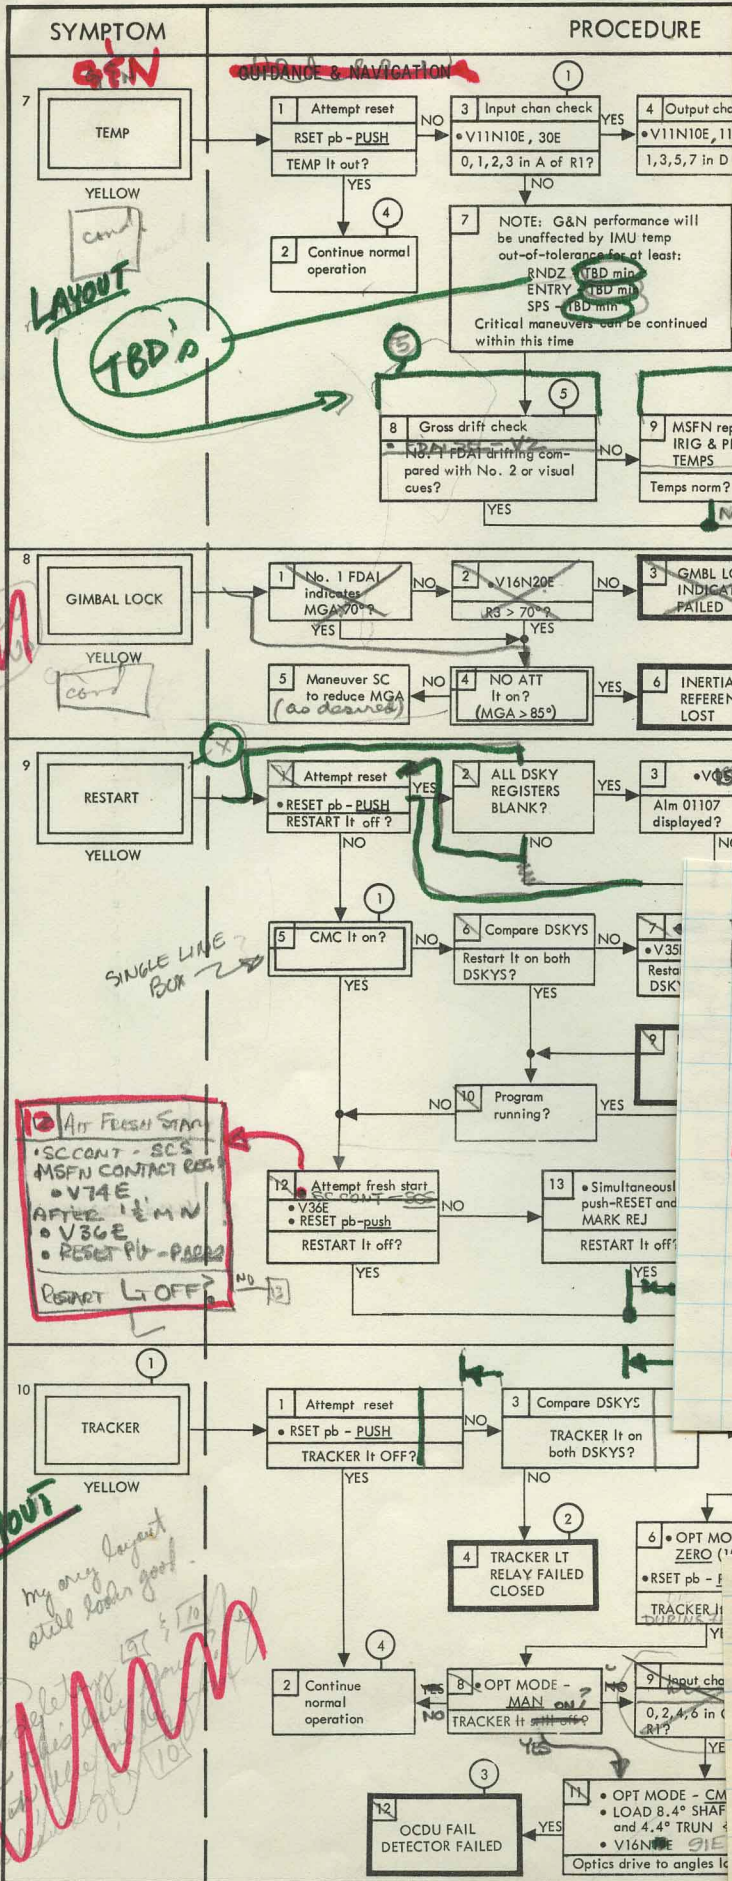 SYMPTOM
PROCEDURE
G&N
GUIDANCE & NAVIGATION
7
TEMP
YELLOW
cond
1
1 Attempt reset
RSET pb - PUSH
TEMP lt out?
NO
YES
3 Input chan check
• V11N10E, 30E
0,1,2,3 in A of R1?
YES
NO
4 Output cha
• V11N10E, 11
1,3,5,7 in D
4
2 Continue normal
operation
7 NOTE: G&N performance will
be unaffected by IMU temp
out-of-tolerance for at least:
RNDZ - TBD min
ENTRY - TBD min
SPS - TBD min
Critical maneuvers can be continued
within this time
LAYOUT
TBD's
5
5
8 Gross drift check
No. 1 FDAI drifting com-
pared with No. 2 or visual
cues?
NO
YES
9 MSFN rep
IRIG & PI
TEMPS
Temps norm?
8
GIMBAL LOCK
YELLOW
cond
1 No. 1 FDAI
indicates
MGA 70°?
NO
YES
2 • V16N20E
R3 > 70°?
NO
YES
3 GMBL LO
INDICAT
FAILED
5 Maneuver SC
to reduce MGA
(as desired)
NO
4 NO ATT
lt on?
(MGA > 85°)
YES
6 INERTIA
REFEREN
LOST
9
RESTART
YELLOW
X
1 Attempt reset
• RESET pb - PUSH
RESTART lt off ?
YES
NO
2 ALL DSKY
REGISTERS
BLANK?
YES
NO
3
Alm 01107
displayed?
NO
1
SINGLE LINE
BOX
5 CMC lt on?
NO
YES
6 Compare DSKYS
Restart lt on both
DSKYS?
NO
YES
7
• V35
Resta
DSKY
9
10 Program
running?
NO
YES
12 Att FRESH START
• SC CONT - SCS
MSFN CONTACT REQ
• V74E
AFTER 1½ MIN
• V36E
RESTART LT OFF?
NO
13
12 Attempt fresh start
• SC CONT - SCS
• V36E
• RESET pb-push
RESTART lt off?
NO
YES
13 • Simultaneousl
push-RESET and
MARK REJ
RESTART lt off?
YES
10
1
TRACKER
YELLOW
1 Attempt reset
• RSET pb - PUSH
TRACKER lt OFF?
NO
YES
3 Compare DSKYS
TRACKER lt on
both DSKYS?
NO
OUT
my orig layout
still looks good.
2
4 TRACKER LT
RELAY FAILED
CLOSED
6 • OPT MO
ZERO (1
• RSET pb - P
TRACKER lt
YE
4
2 Continue
normal
operation
YES
NO
8 • OPT MODE -
MAN on?
TRACKER lt still off?
NO
YES
9 Input cha
0,2,4,6 in C
R1?
YE
3
12
OCDU FAIL
DETECTOR FAILED
YES
11 • OPT MODE - CM
• LOAD 8.4° SHAF
and 4.4° TRUN
• V16N 91E
Optics drive to angles lo